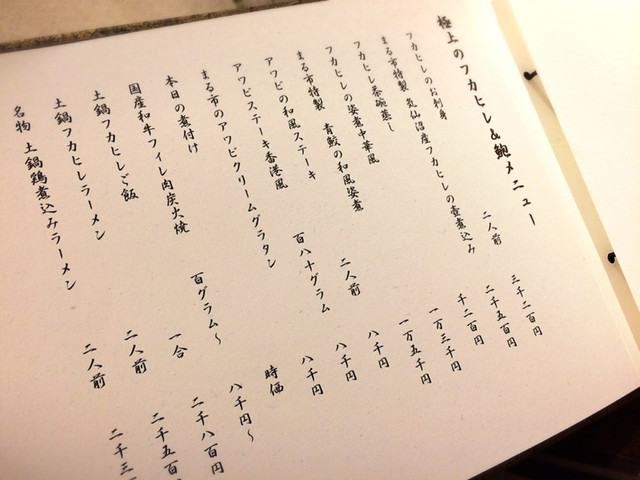 極上のフカヒレ&鮑メニュー
フカヒレのお刺身 二人前 三千二百円
まる市特製 気仙沼産フカヒレの壺煮込み 二千五百円
フカヒレ茶碗蒸し 千二百円
フカヒレの姿煮中華風 一万三千円
まる市特製 青鮫の和風姿煮 二人前 一万五千円
アワビの和風ステーキ 百八十グラム 八千円
アワビステーキ香港風 八千円
まる市のアワビクリームグラタン 八千円
本日の煮付け 時価
国産和牛フィレ肉炭火焼 百グラム〜 八千円〜
土鍋フカヒレご飯 一合 二千八百円
土鍋フカヒレラーメン 二人前 二千五百
名物 土鍋鶏煮込みラーメン 二人前 二千三